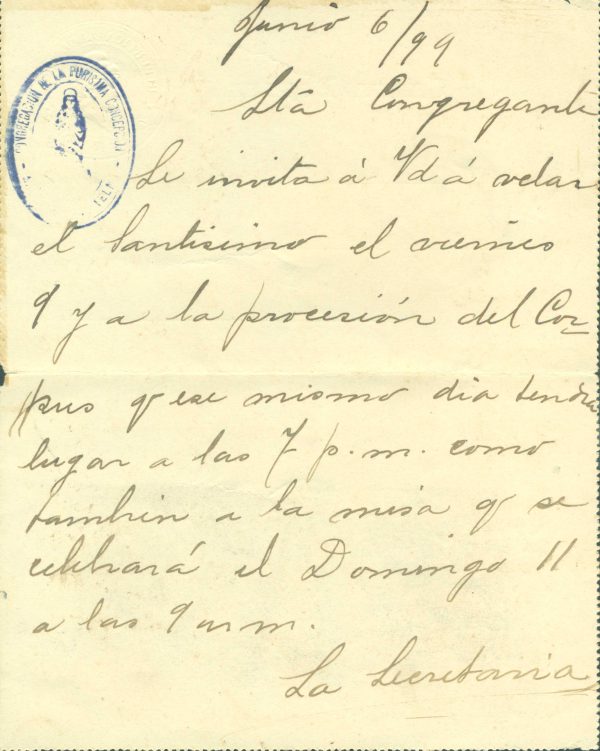 Junio 6/99
CONGREGACION DE LA PURISIMA CONCEPCION
Sta Congregante
Se invita á Vd á velar
el Santisimo el viernes
9 y a la procesión del Cor-
pus q ese mismo dia tendra
lugar a las 7 p.m. como
tambien a la misa q se
celebrará el Domingo 11
a las 9 a m.
La Secretaria